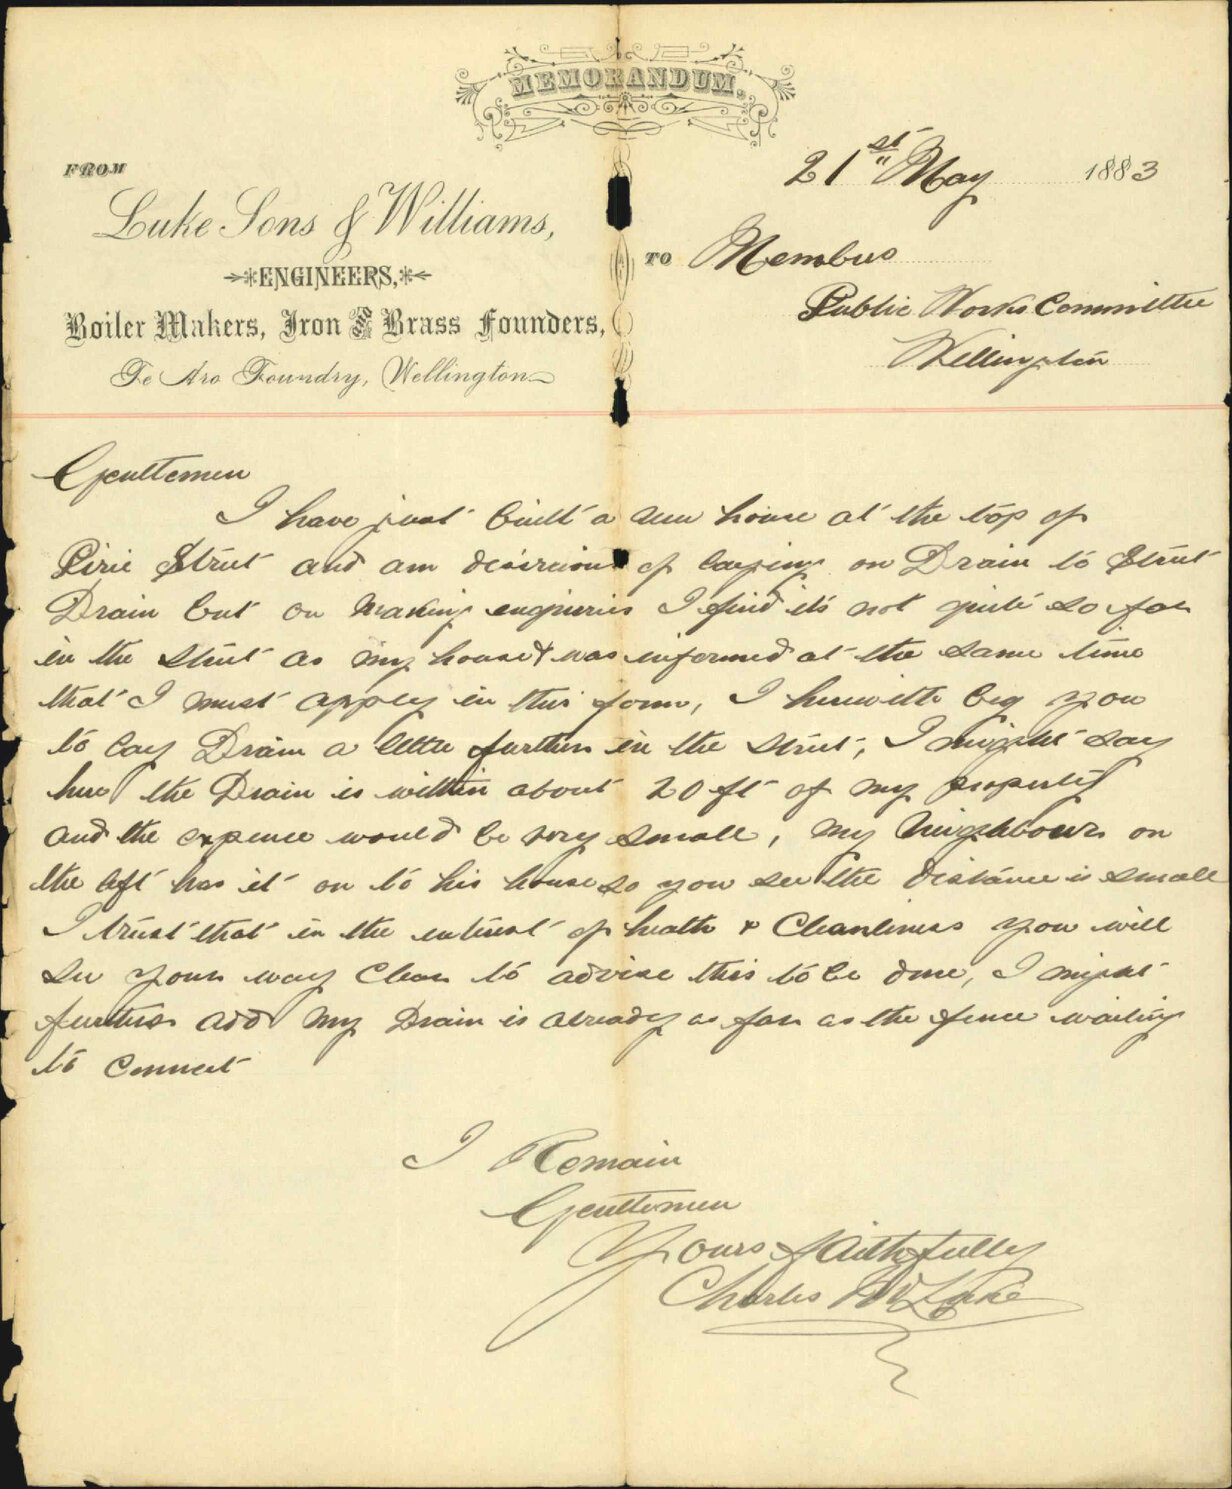 MEMORANDUM.
21st May 1883
FROM
Luke Sons & Williams,
ENGINEERS,
Boiler Makers, Iron & Brass Founders,
Te Aro Foundry, Wellington
TO Members
Public Works Committee
Wellington
Gentlemen
I have just built a new house at the top of
Pirie Street and am desireious of laying on Drain to Street
Drain but on making enqineries I find it's not quite so far
in the street as my house & was informed at the same time
that I must apply in this form, I herewith beg you
to lay Drain a little further in the street, I might say
here the Drain is within about 20 ft of my property
and the expence would be very small, my Neighbour on
the left has it on to his house so you see the distance is small
I trust that in the interest of health & Cleanliness you will
see your way Clear to advise this to be done, I might
further add my Drain is already as far as the fence waiting
to connect
I Remain
Gentlemen
Yours faithfully
Charles Luke